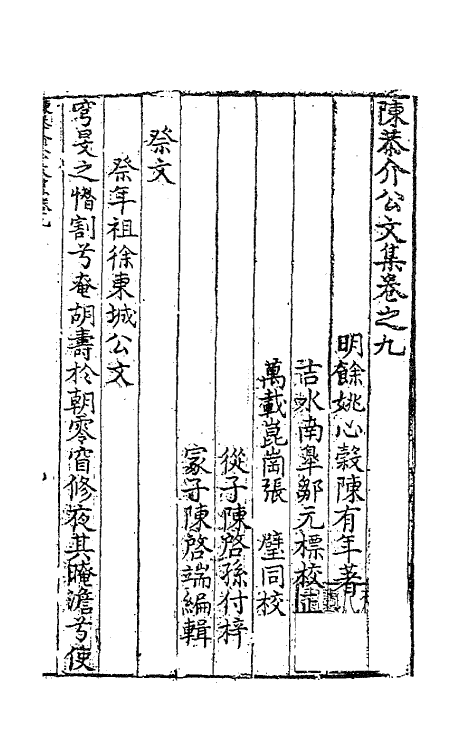 陳恭介公文集卷之九
明餘姚心穀陳有年著
吉水南臯鄒元標校
萬載崑崗張　璧同校
從子陳啓孫付梓
家子陳啓端編輯
祭文
祭年祖徐東城公文
穹旻之憯割兮奄胡壽於朝零窅修夜其晻澹兮使